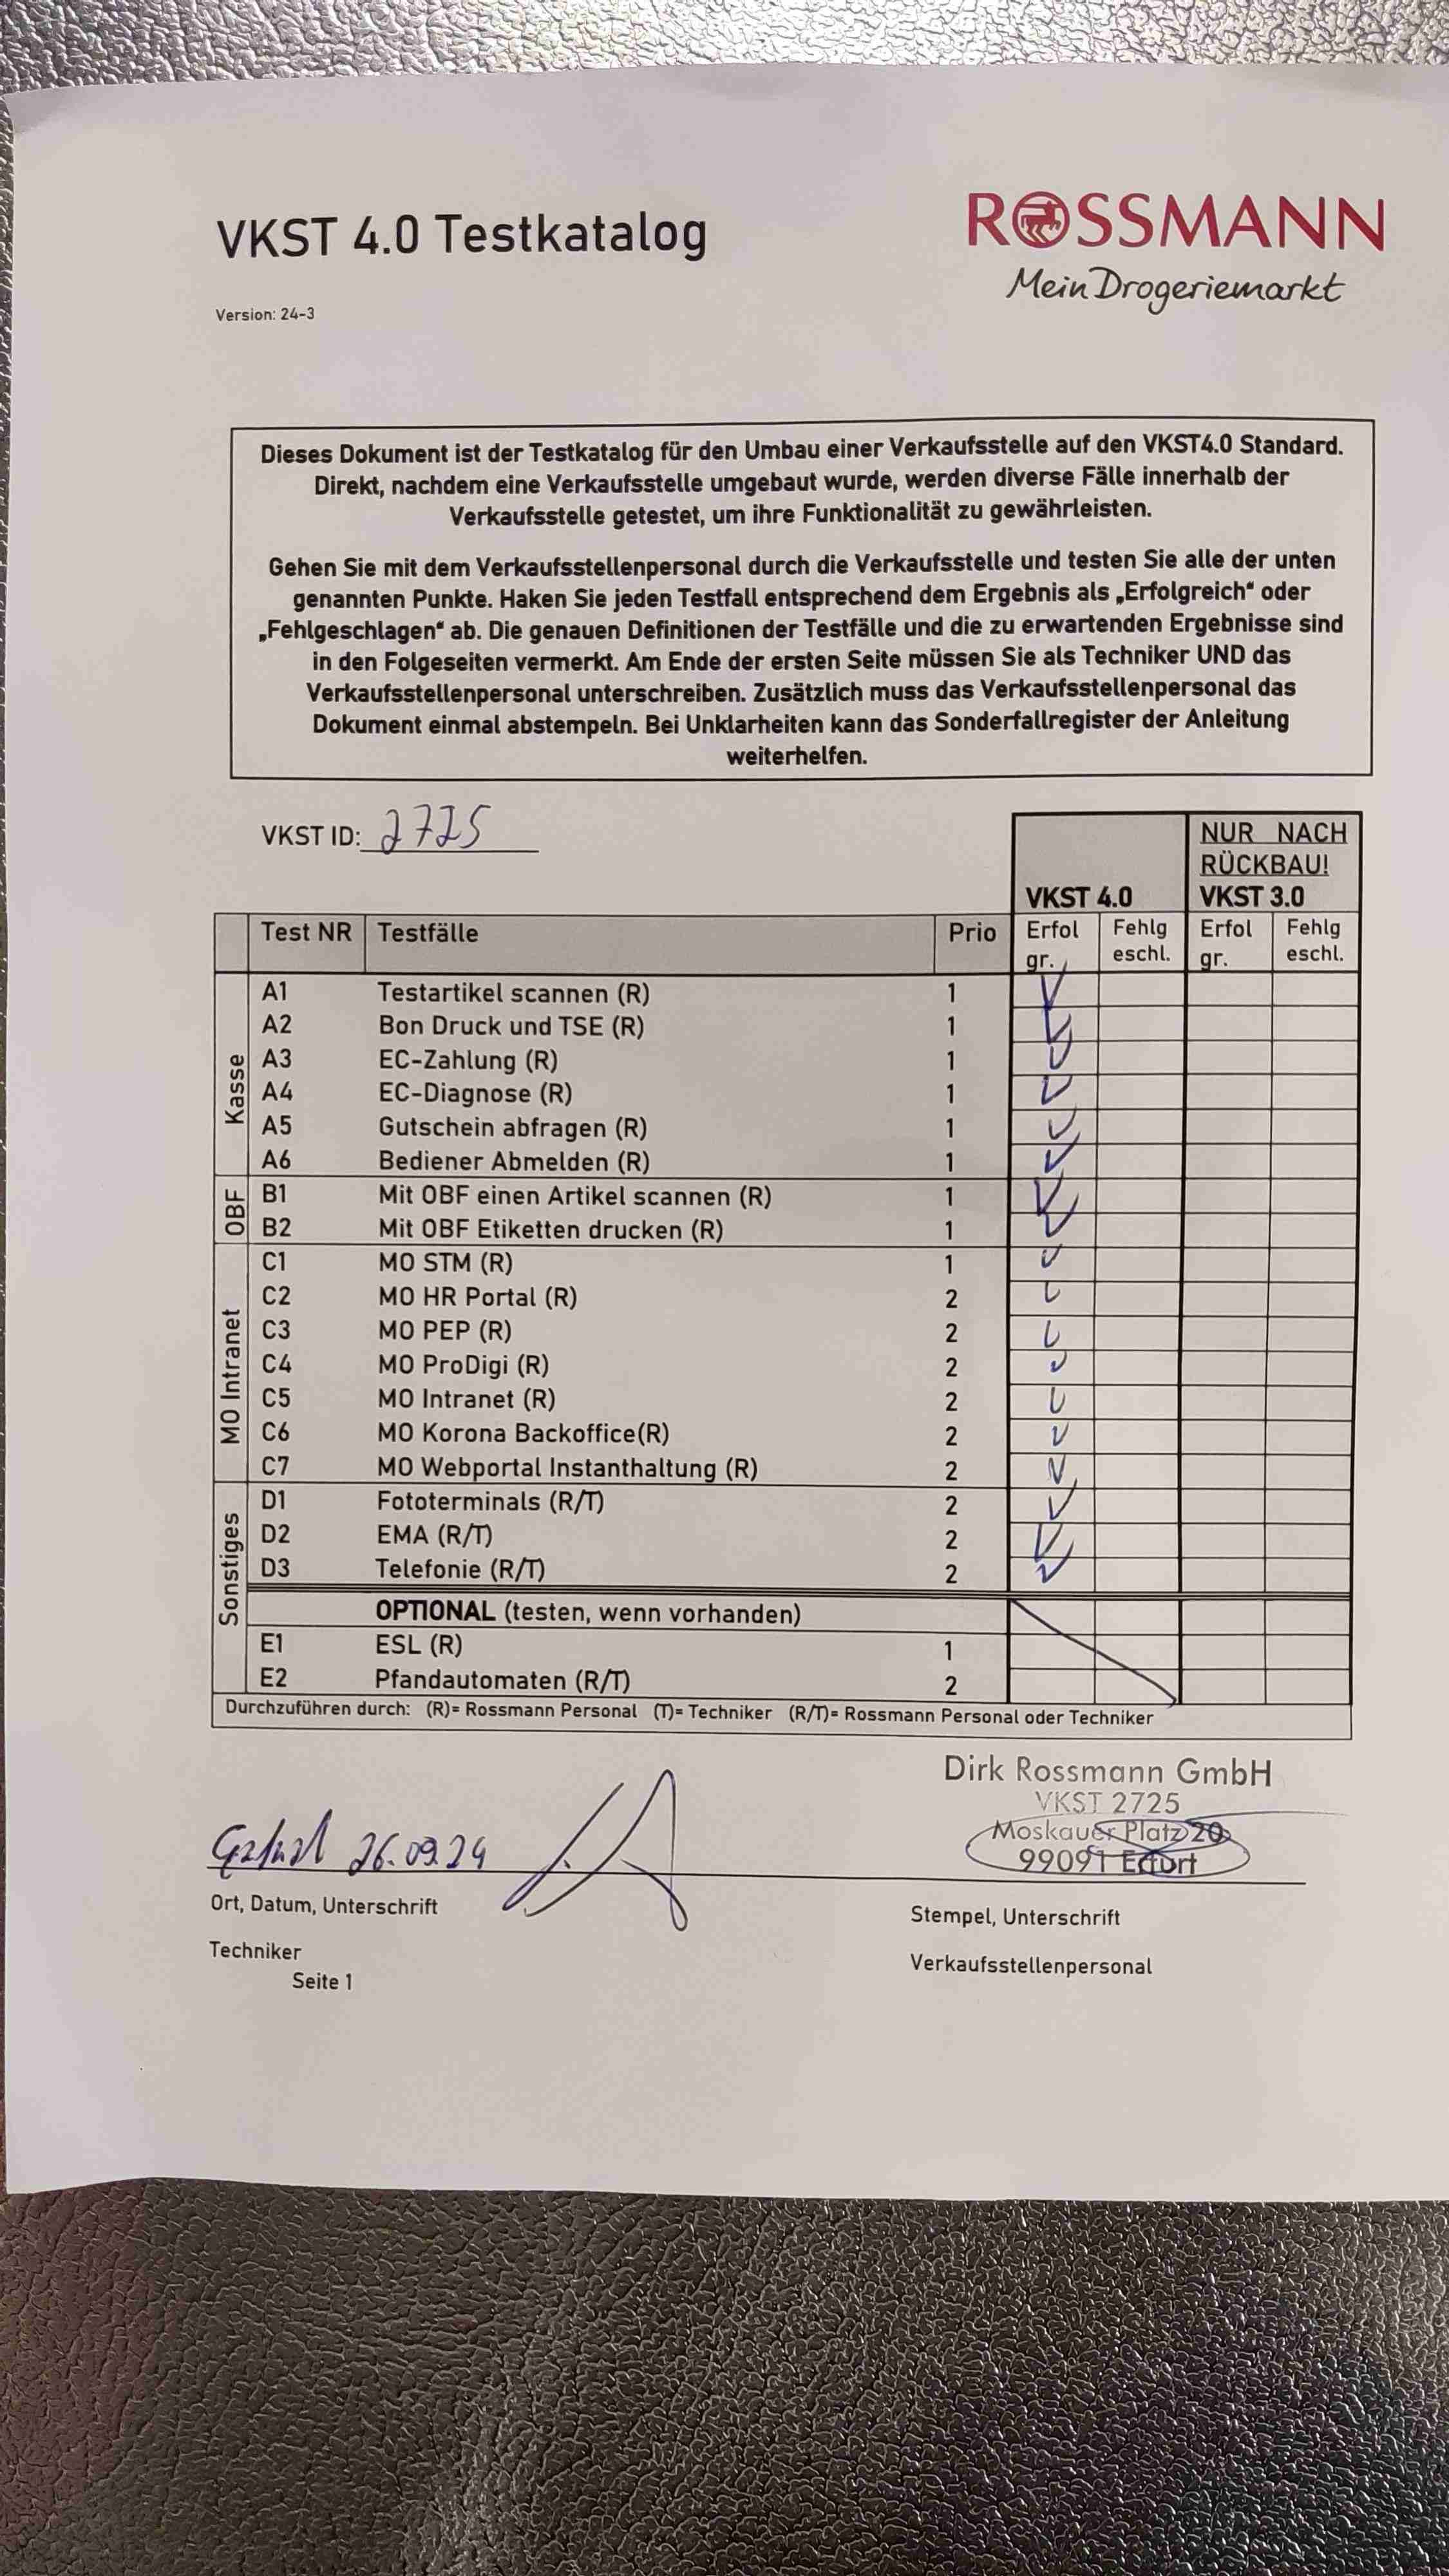 VKST 4.0 Testkatalog
ROSSMANN
Mein Drogeriemarkt
Version: 24-3
Dieses Dokument ist der Testkatalog für den Umbau einer Verkaufsstelle auf den VKST4.0 Standard.
Direkt, nachdem eine Verkaufsstelle umgebaut wurde, werden diverse Fälle innerhalb der
Verkaufsstelle getestet, um ihre Funktionalität zu gewährleisten.
Gehen Sie mit dem Verkaufsstellenpersonal durch die Verkaufsstelle und testen Sie alle der unten
genannten Punkte. Haken Sie jeden Testfall entsprechend dem Ergebnis als „Erfolgreich“ oder
„Fehlgeschlagen“ ab. Die genauen Definitionen der Testfälle und die zu erwartenden Ergebnisse sind
in den Folgeseiten vermerkt. Am Ende der ersten Seite müssen Sie als Techniker UND das
Verkaufsstellenpersonal unterschreiben. Zusätzlich muss das Verkaufsstellenpersonal das
Dokument einmal abstempeln. Bei Unklarheiten kann das Sonderfallregister der Anleitung
weiterhelfen.
VKST ID: 2725
NUR NACH
RÜCKBAU!
VKST 4.0 VKST 3.0
Test NR Testfälle Prio Erfol Fehlg Erfol Fehlg
gr. eschl. gr. eschl.
Kasse
A1 Testartikel scannen (R) 1
A2 Bon Druck und TSE (R) 1
A3 EC-Zahlung (R) 1
A4 EC-Diagnose (R) 1
A5 Gutschein abfragen (R) 1
A6 Bediener Abmelden (R) 1
OBF
B1 Mit OBF einen Artikel scannen (R) 1
B2 Mit OBF Etiketten drucken (R) 1
MO Intranet
C1 MO STM (R) 1
C2 MO HR Portal (R) 2
C3 MO PEP (R) 2
C4 MO ProDigi (R) 2
C5 MO Intranet (R) 2
C6 MO Korona Backoffice(R) 2
C7 MO Webportal Instanthaltung (R) 2
Sonstiges
D1 Fototerminals (R/T) 2
D2 EMA (R/T) 2
D3 Telefonie (R/T) 2
OPTIONAL (testen, wenn vorhanden)
E1 ESL (R) 1
E2 Pfandautomaten (R/T) 2
Durchzuführen durch: (R)= Rossmann Personal (T)= Techniker (R/T)= Rossmann Personal oder Techniker
Dirk Rossmann GmbH
VKST 2725
Moskauer Platz 20
99091 Erfurt
26.09.24
Ort, Datum, Unterschrift
Stempel, Unterschrift
Techniker
Verkaufsstellenpersonal
Seite 1